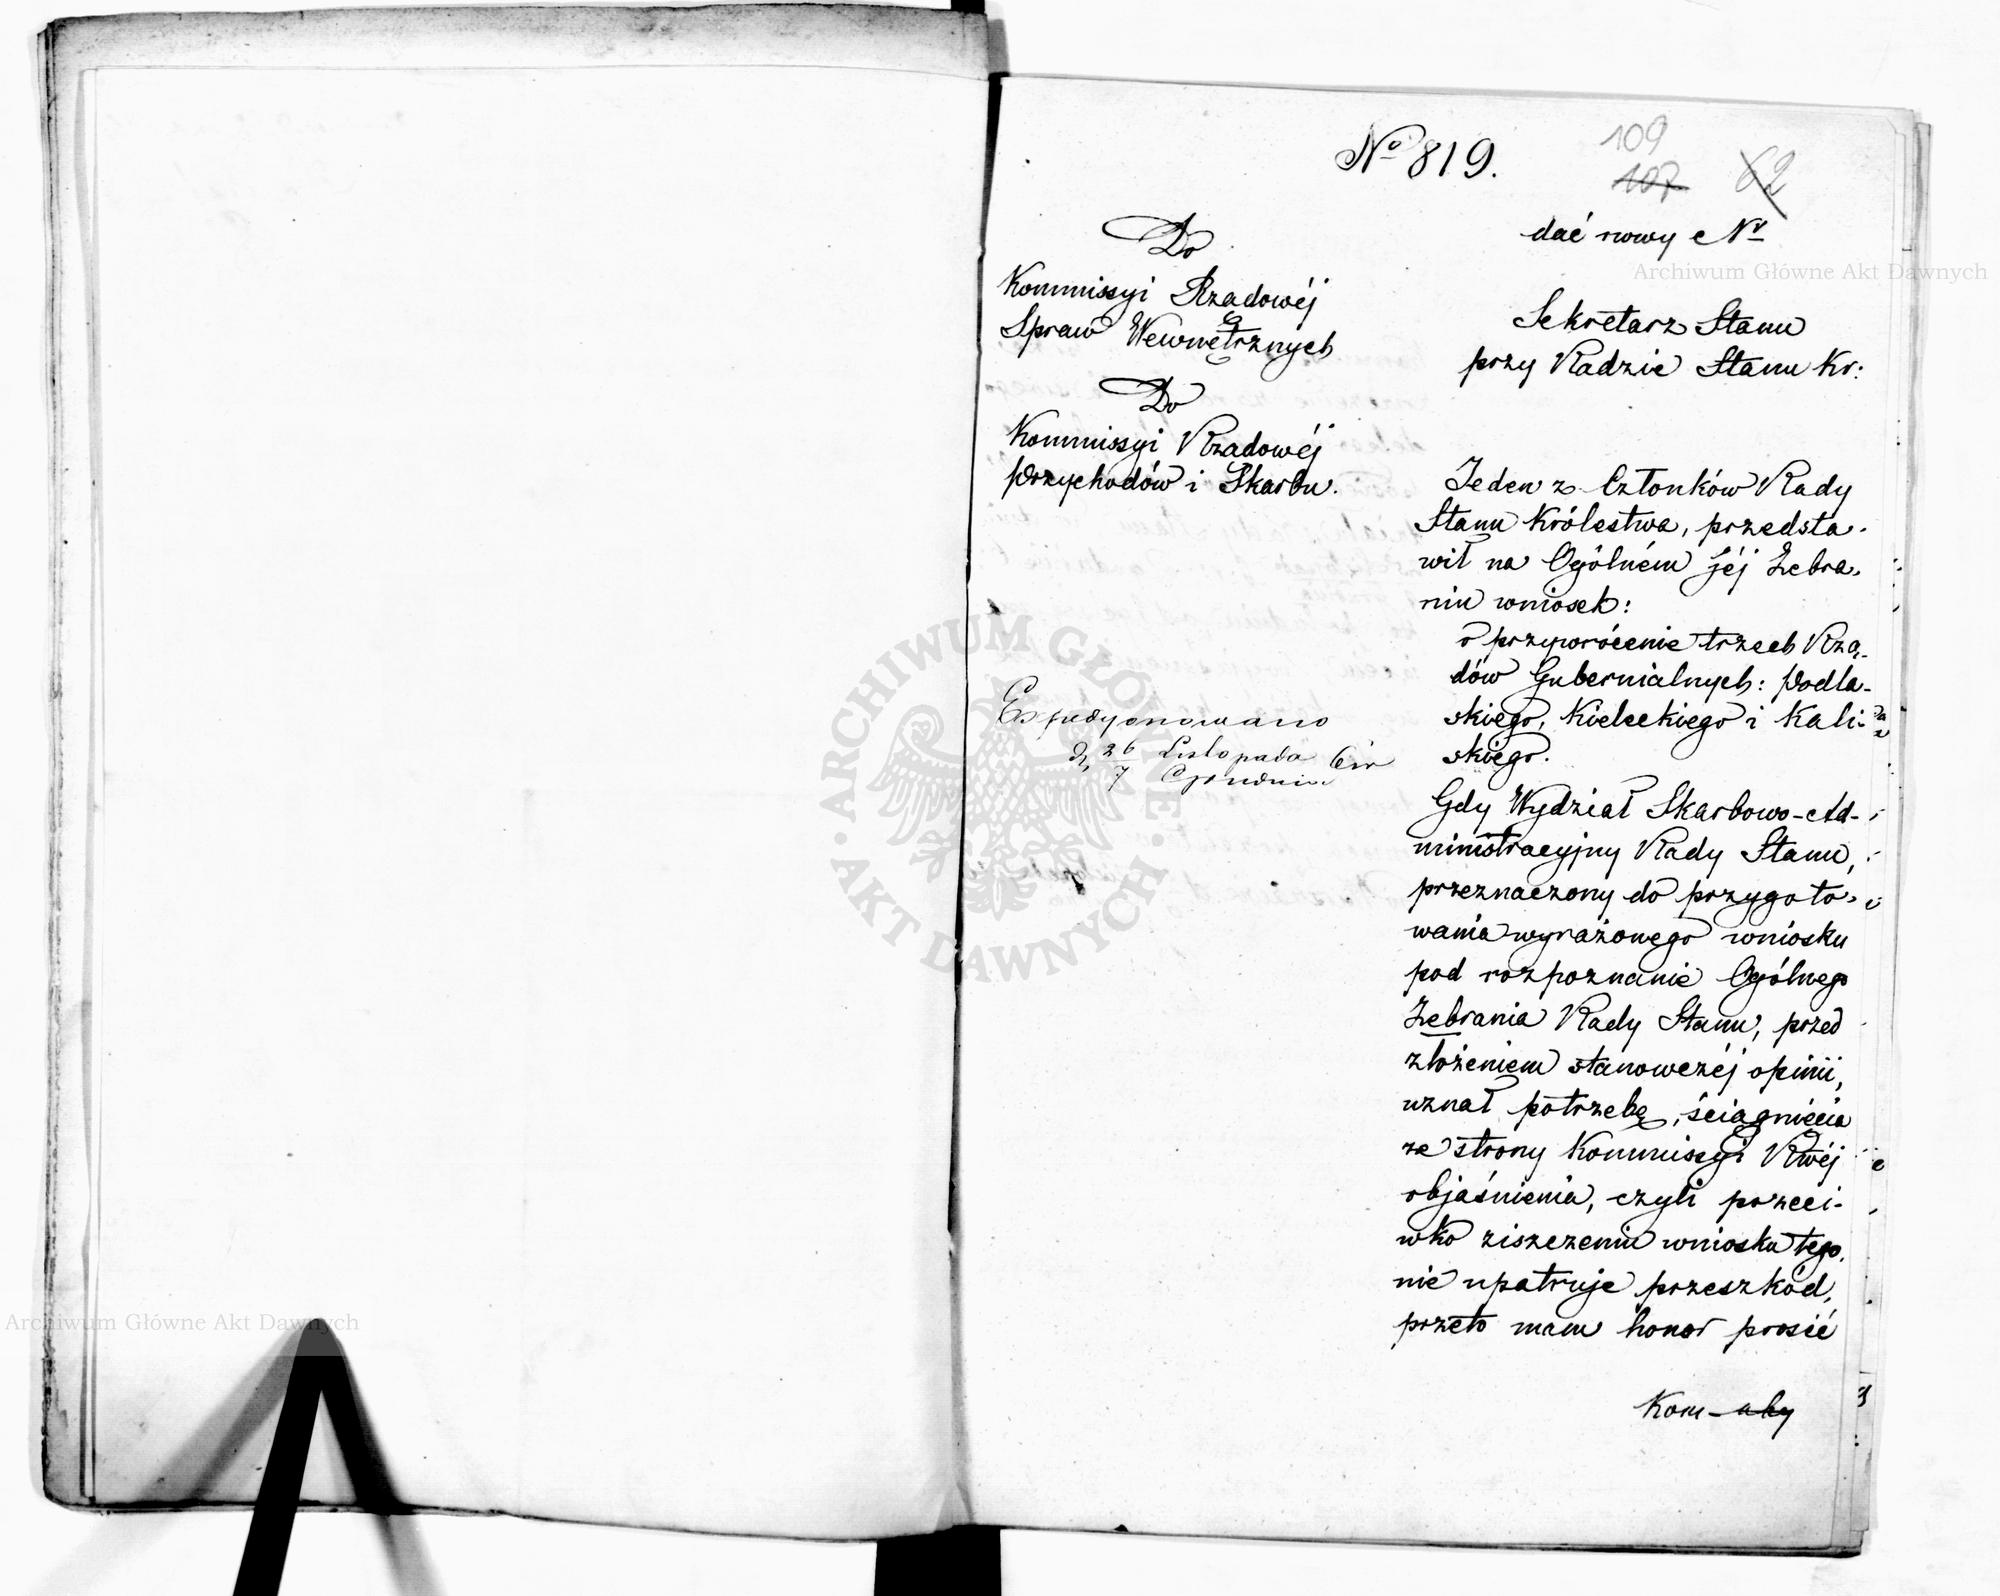 № 819.
109
107
62
dać nowy Nr
Do
Kommissyi Rządowéj
Spraw Wewnętrznych
Do
Kommissyi Rządowéj
Przychodów i Skarbu.
Expedyonowano
d. 26 Listopada
7 Grudnia
Sekretarz Stanu
przy Radzie Stanu Kr:
Jeden z Członków Rady
Stanu Królestwa, przedsta-
wił na Ogólném Jéj Zebra-
niu wniosek:
o przywrócenie trzech Rzą-
dów Gubernialnych: Podla-
skiego, Kieleckiego i Kali-
skiego.
Gdy Wydział Skarbowo-Ad-
ministracyjny Rady Stanu,
przeznaczony do przygoto-
wania wyrażonego wniosku
pod rozpoznanie Ogólnego
Zebrania Rady Stanu, przed
złożeniem stanowczéj opinii,
uznał potrzebę, ściągnięcia
ze strony Kommissyi Rwéj
objaśnienia, czyli przeci-
wko ziszczeniu wniosku tego,
nie upatruje przeszkód,
przeto mam honor prosić
Kom- aby
ARCHIWUM GŁÓWNE AKT DAWNYCH
Archiwum Główne Akt Dawnych
Archiwum Główne Akt Dawnych